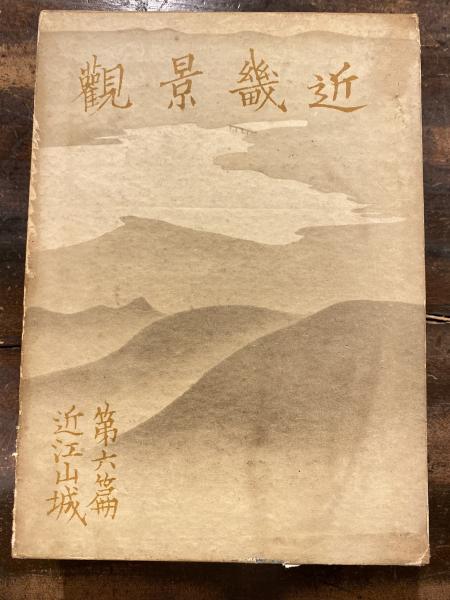 近畿景觀
第六篇
近江山城